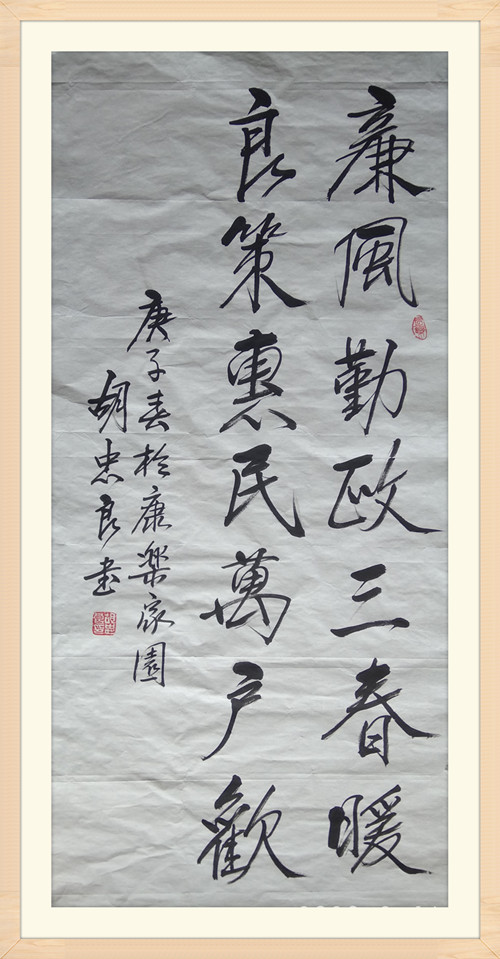 廉風勤政三春暖
良策惠民萬戶歡
庚子春於康樂家園
胡忠良書